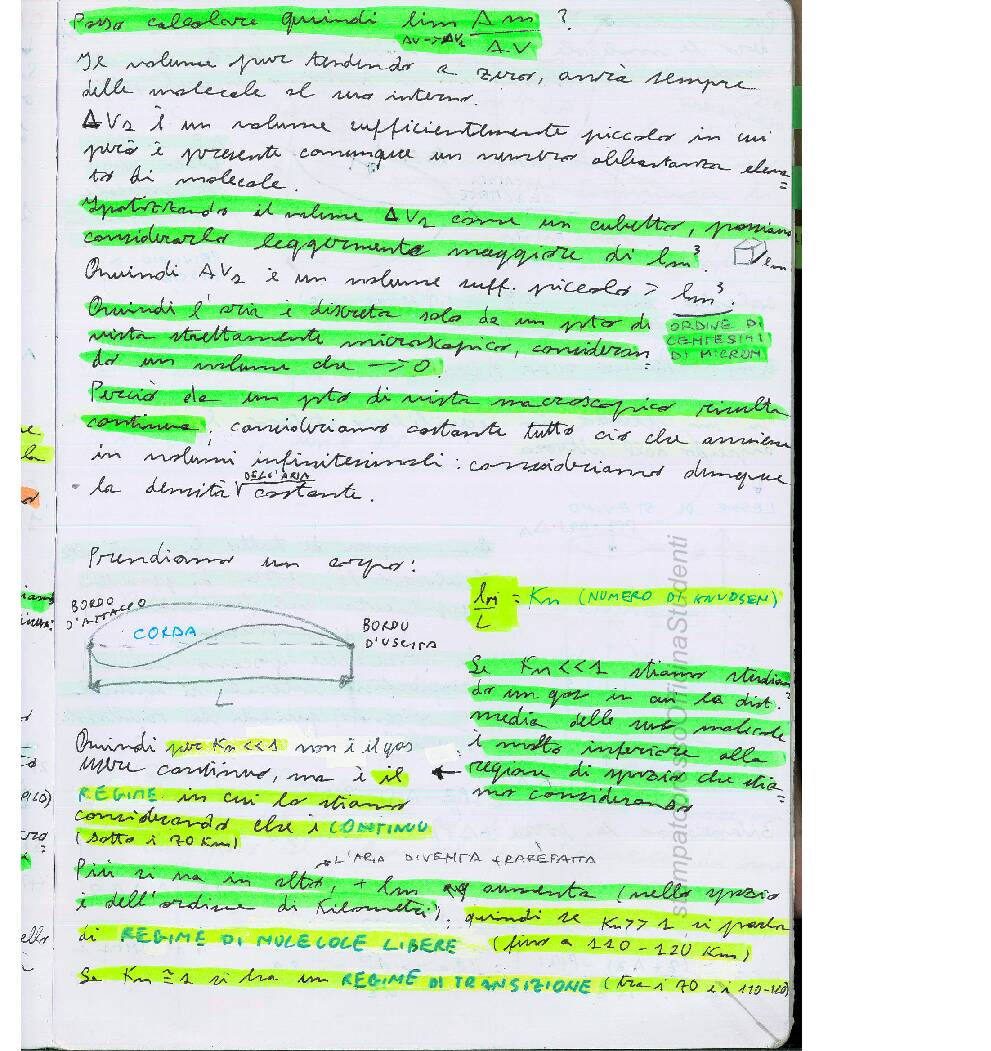 Posso calcolare quindi lim Δm ?
ΔV→ΔV2 ΔV
Il volume pur tendendo a zero, avrà sempre
delle molecole al suo interno.
ΔV2 è un volume sufficientemente piccolo in cui
però è presente comunque un numero abbastanza eleva=
to di molecole.
Ipotizzando il volume ΔV2 come un cubetto, possiamo
considerarlo leggermente maggiore di lm³. lm
Quindi ΔV2 è un volume suff. piccolo > lm³.
Quindi l'aria è discreta solo da un pto di
vista strettamente microscopico, consideran=
do un volume che → 0.
ORDINE DI
CENTESIMI
DI MICRON
Perciò da un pto di vista macroscopico risulta
continua; consideriamo costante tutto ciò che avviene
in volumi infinitesimali: consideriamo dunque
la densità DELL'ARIA costante.
Prendiamo un corpo:
BORDO
D'ATTACCO
CORDA
BORDO
D'USCITA
L
lm = Kn (NUMERO DI KNUDSEN)
L
Se Kn<<1 stiamo studian=
do un gas in cui la dist.
media delle sue molecole
è molto inferiore alla
regione di spazio che stia=
mo considerando
Quindi per Kn<<1 non è il gas
essere continuo, ma è il ←
REGIME in cui lo stiamo
considerando che è CONTINUO
(sotto i 70 Km)
L'ARIA DIVENTA + RAREFATTA
Più si va in alto, + lm aumenta (nello spazio
è dell'ordine di Kilometri); quindi se Kn>>1 si parla
di REGIME DI MOLECOLE LIBERE (fino a 110-120 Km)
Se Kn ≅ 1 si ha un REGIME DI TRANSIZIONE (tra i 70 e i 110-120)